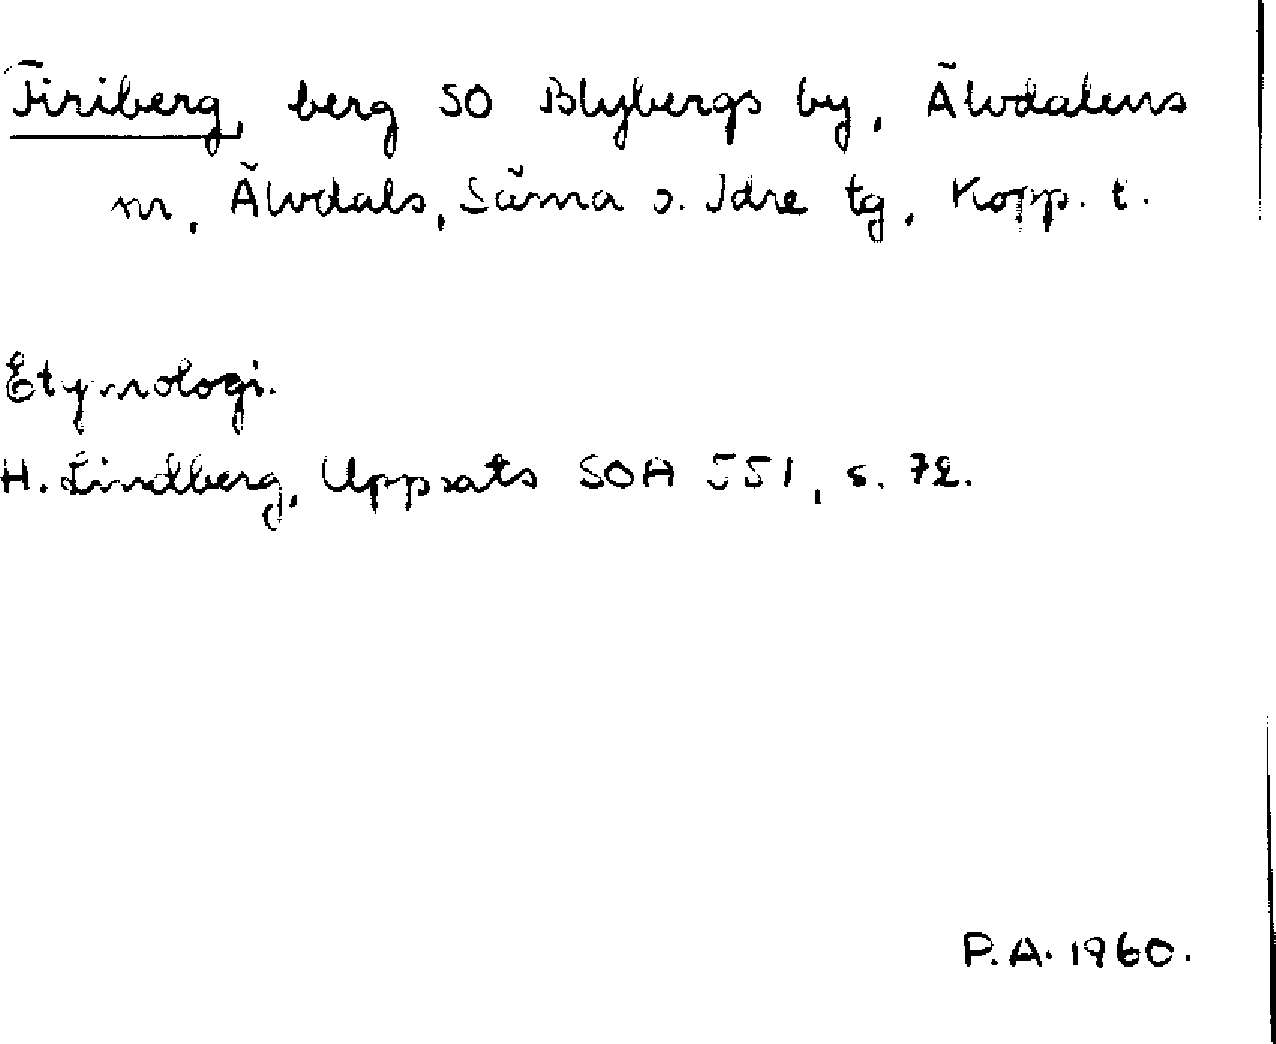 Firiberg, berg SO Blybergs by, Älvdalens
m, Älvdals, Särna o. Idre tg, Kopp. t.
Etymologi.
H. Lindberg, Uppsats SOA 551, s. 72.
P.A. 1960.